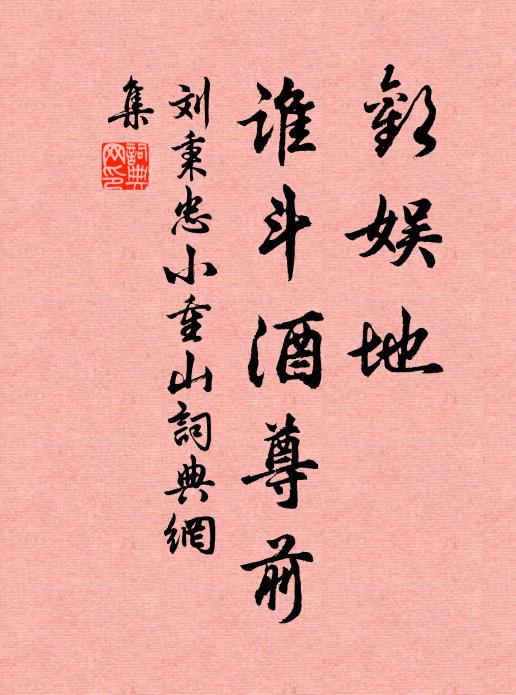 歡娱地
谁斗酒尊前
刘秉忠小重山詞典網
集
詞典網印